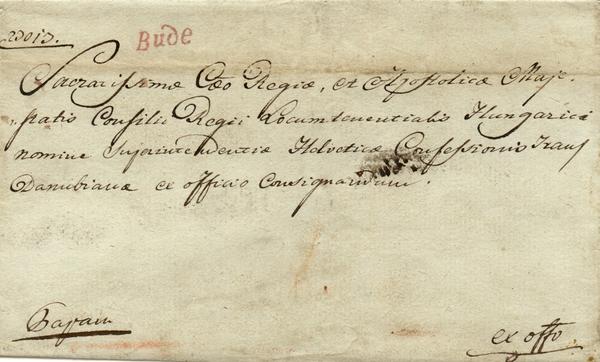 23013.
Bude
Sacratissimæ Cæo Regiæ, et Apostolicæ Maje-
statis Consilii Regii Locumtenentialis Hungarici
nomine Superintendentiæ Helveticæ Confessionis Trans
Danubianæ ex officio Consignandum.
Papam
ex offo